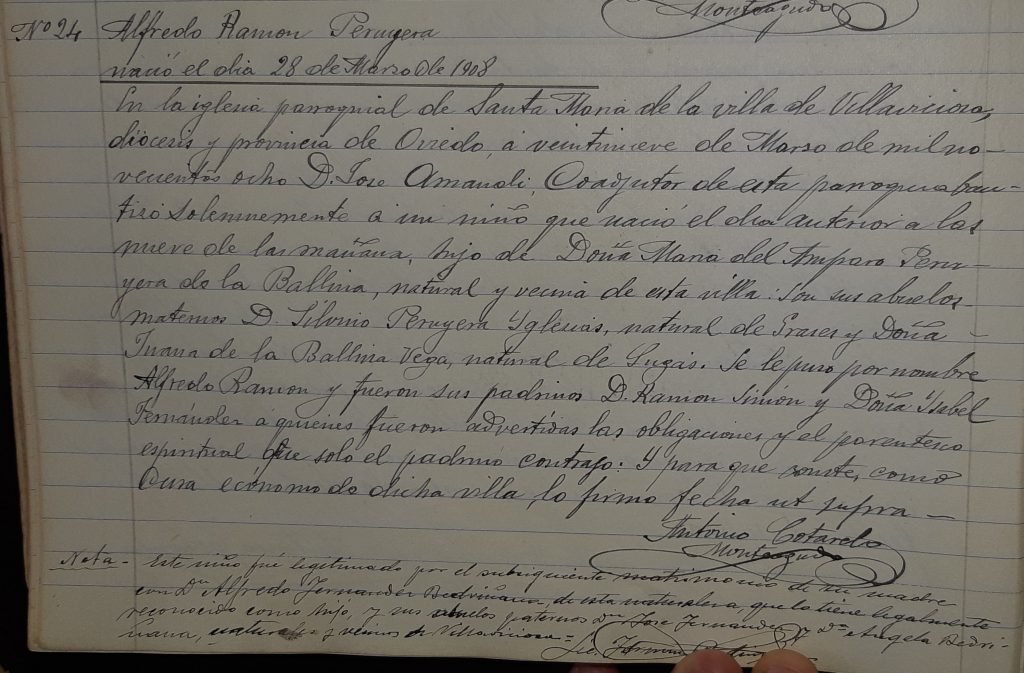 Monteagudo
Nº 24 Alfredo Ramon Peruyera
nació el dia 28 de Marso de 1908
En la iglesia parroquial de Santa Maria de la villa de Villaviciosa,
diócesis y provincia de Oviedo, á veintinueve de Marso de mil no-
vecientos ocho D. Jose Amandi, Coadjutor de esta parroquia bau-
tisó solennemente á un niño que nació el dia anterior a las
nueve de las mañana, hijo de Doña Maria del Amparo Peru-
yera de la Ballina, natural y vecina de esta villa: Son sus abuelos
maternos D. Silvino Peruyera Yglesias, natural de Grases y Doña
Juana de la Ballina Vega, natural de Lugás. Se le puso por nombre
Alfredo Ramon y fueron sus padrinos D. Ramon Simón y Doña Ysabel
Fernández á quienes fueron advertidas las obligaciones y el parentesco
espiritual que solo el padrino contrajo: Y para que conste, como
Cura ecónomo de dicha villa, lo firmo fecha ut supra —
Antonio Cotarelo
Monteagudo
Nota - Este niño fué legitimado por el subsiguiente matrimonio de su madre
con Dn Alfredo Fernandez Bedriñana, de esta naturaleza, que lo tiene legalmente
reconocido como hijo, y sus abuelos paternos Dn Jose Fernandez y Da Angela Bedri-
ñana, naturales y vecinos de Villaviciosa =
Lic. Fermin